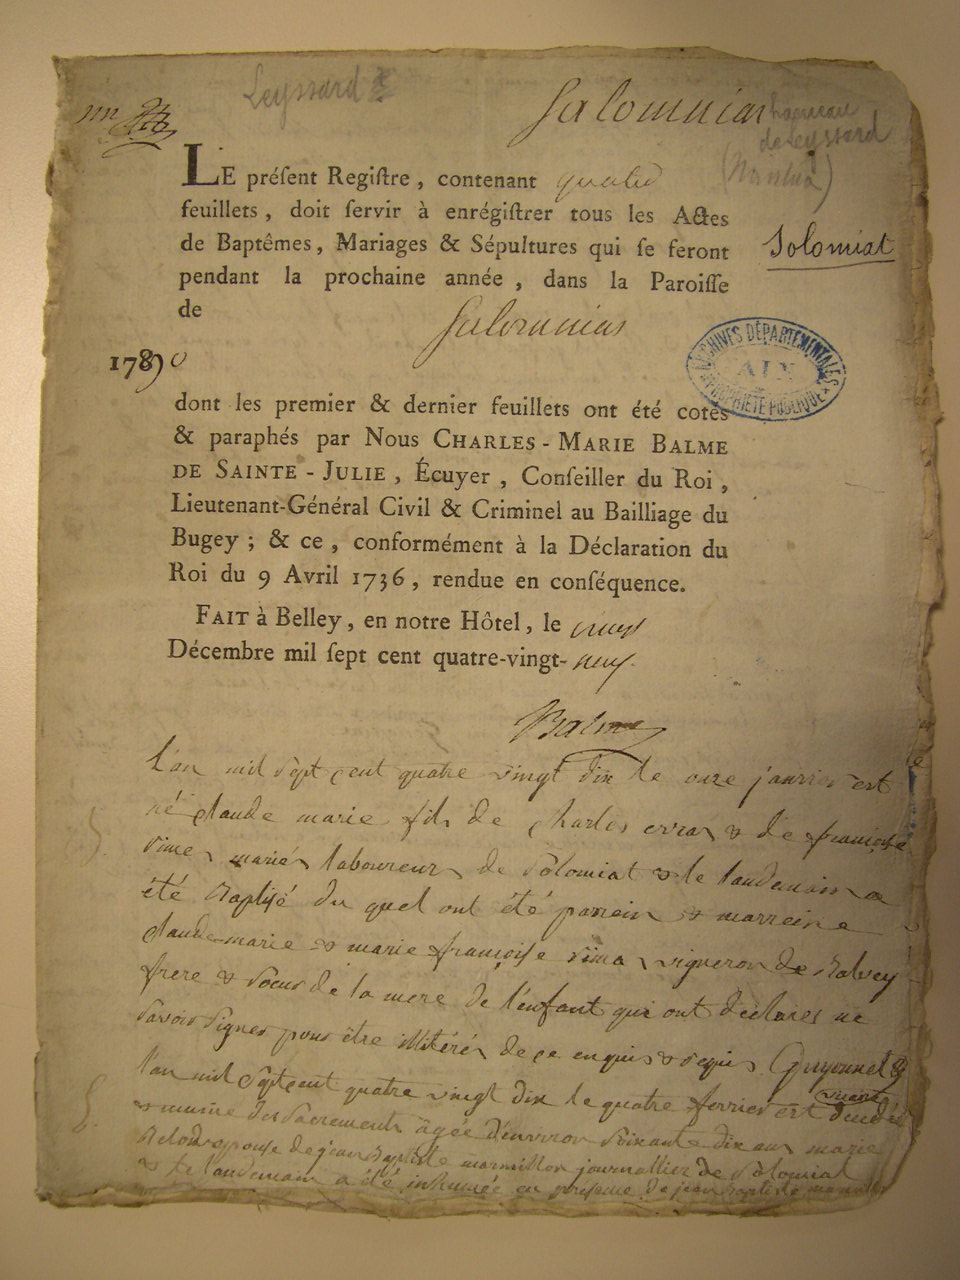 Leyssard
Salomnias
hameau
de Leyssard
(Nantua)
LE préſent Regiſtre, contenant quatre
feuillets, doit ſervir à enrégiſtrer tous les Actes
de Baptêmes, Mariages & Sépultures qui ſe feront
Solomiat
pendant la prochaine année, dans la Paroiſſe
de Salomnias
ARCHIVES DÉPARTEMENTALES
AIN
PROPRIÉTÉ PUBLIQUE
1790
dont les premier & dernier feuillets ont été cotés
& paraphés par Nous CHARLES-MARIE BALME
DE SAINTE-JULIE, Écuyer, Conſeiller du Roi,
Lieutenant-Général Civil & Criminel au Bailliage du
Bugey; & ce, conformément à la Déclaration du
Roi du 9 Avril 1736, rendue en conſéquence.
FAIT à Belley, en notre Hôtel, le
Décembre mil ſept cent quatre-vingt-neuf.
Balme
L'an mil sept cent quatre vingt dix le onze janvier est
né claude marie fils de charles & de françoise
mariés laboureurs de Solomiat & le landemain a
été Baptisé du quel ont été parrein & marreine
claude marie & marie françoise vigneron de
frere & soeur de la mere de l'enfant qui ont déclarés ne
savoir signer pour être illitérés de ce enquis & requis Guyonnet
l'an mil sept cent quatre vingt dix le quatre fevrier est decedée
& munie des sacrements âgée d'environ soixante dix ans marie
epouse de jean Baptiste marmillon journallier de Solomiat
& le landemain a été inhumée en presence de jean Baptiste